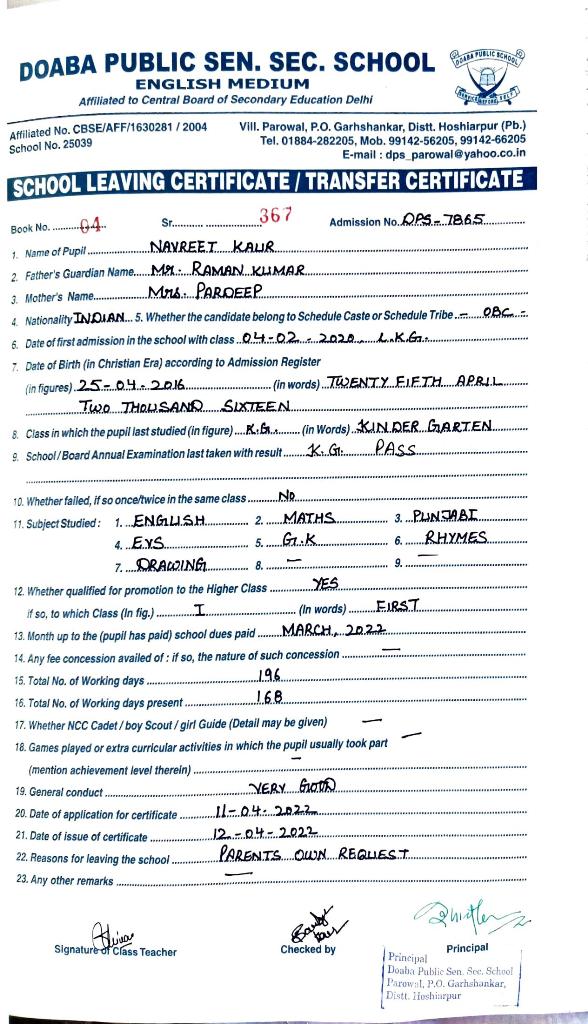 DOABA PUBLIC SEN. SEC. SCHOOL
ENGLISH MEDIUM
Affiliated to Central Board of Secondary Education Delhi
DOABA PUBLIC SCHOOL
Affiliated No. CBSE/AFF/1630281 / 2004
School No. 25039
Vill. Parowal, P.O. Garhshankar, Distt. Hoshiarpur (Pb.)
Tel. 01884-282205, Mob. 99142-56205, 99142-66205
E-mail : dps_parowal@yahoo.co.in
SCHOOL LEAVING CERTIFICATE / TRANSFER CERTIFICATE
Book No. 04 Sr. 367 Admission No. DPS-7865
1. Name of Pupil NAVREET KAUR
2. Father's Guardian Name Mr. RAMAN KUMAR
3. Mother's Name Mrs. PARDEEP
4. Nationality INDIAN 5. Whether the candidate belong to Schedule Caste or Schedule Tribe - OBC -
6. Date of first admission in the school with class 04-02-2020, L.K.G.
7. Date of Birth (in Christian Era) according to Admission Register
(in figures) 25-04-2016 (in words) TWENTY FIFTH APRIL
TWO THOUSAND SIXTEEN
8. Class in which the pupil last studied (in figure) K.G. (in Words) KINDER GARTEN
9. School / Board Annual Examination last taken with result K.G. PASS
10. Whether failed, if so once/twice in the same class No
11. Subject Studied : 1. ENGLISH 2. MATHS 3. PUNJABI
4. EVS 5. G.K 6. RHYMES
7. DRAWING 8. — 9. —
12. Whether qualified for promotion to the Higher Class YES
if so, to which Class (In fig.) I (In words) FIRST
13. Month up to the (pupil has paid) school dues paid MARCH, 2022
14. Any fee concession availed of : if so, the nature of such concession —
15. Total No. of Working days 196
16. Total No. of Working days present 168
17. Whether NCC Cadet / boy Scout / girl Guide (Detail may be given) —
18. Games played or extra curricular activities in which the pupil usually took part —
(mention achievement level therein) —
19. General conduct VERY GOOD
20. Date of application for certificate 11-04-2022
21. Date of issue of certificate 12-04-2022
22. Reasons for leaving the school PARENTS OWN REQUEST
23. Any other remarks —
Signature of Class Teacher
Checked by
Principal
Principal
Doaba Public Sen. Sec. School
Parowal, P.O. Garhshankar,
Distt. Hoshiarpur